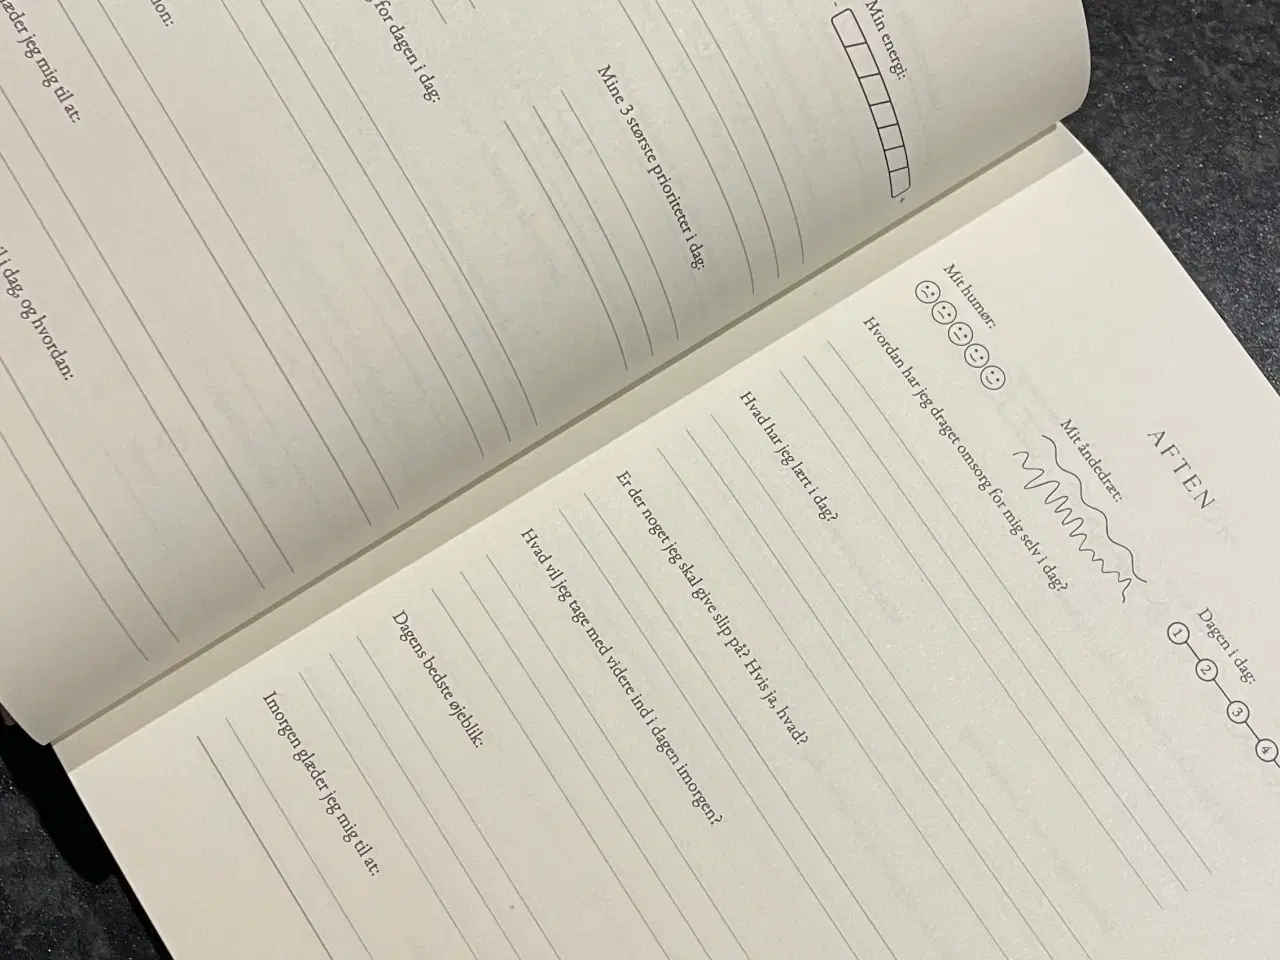 Min energi:
- +
Mine 3 største prioriteter i dag:
for dagen i dag:
glæder jeg mig til at:
i dag, og hvordan:
AFTEN
Mit humør:
Mit åndedræt:
Dagen i dag:
1 2 3 4
Hvordan har jeg draget omsorg for mig selv i dag?
Hvad har jeg lært i dag?
Er der noget jeg skal give slip på? Hvis ja, hvad?
Hvad vil jeg tage med videre ind i dagen imorgen?
Dagens bedste øjeblik:
Imorgen glæder jeg mig til at: